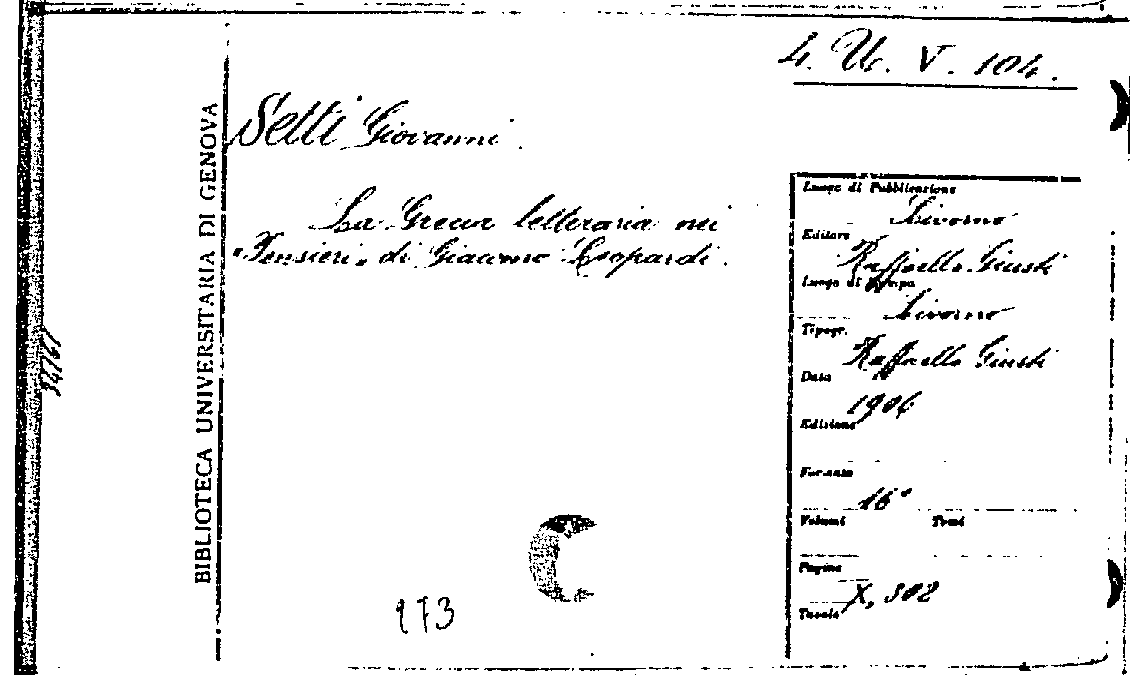 4. U. V. 104.
BIBLIOTECA UNIVERSITARIA DI GENOVA
Setti Giovanni.
La Grecia letteraria nei
"Pensieri" di Giacomo Leopardi.
Luogo di Pubblicazione
Livorno
Editore
Raffaello Giusti
Luogo di Stampa
Livorno
Tipogr.
Raffaello Giusti
Data
1906
Edizione
Formato
16°
Volumi Tomi
Pagine
X, 302
Tavole
173